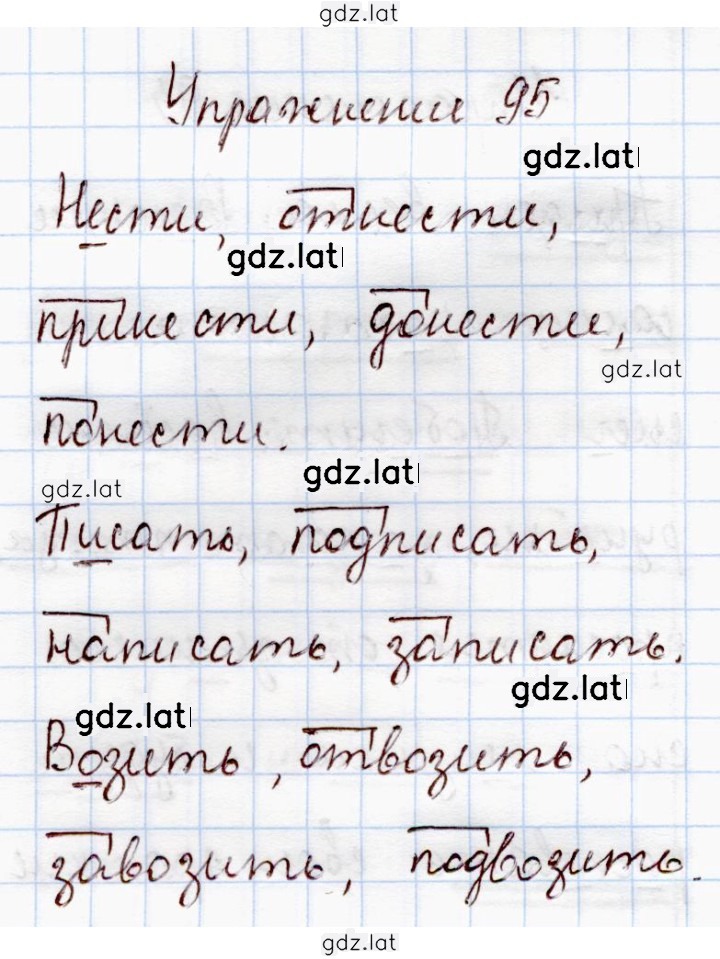 gdz.lat
Упражнение 95
gdz.lat
Нести, отнести,
gdz.lat
принести, донести,
gdz.lat
понести.
gdz.lat
gdz.lat
Писать, подписать,
написать, записать.
gdz.lat
gdz.lat
Возить, отвозить,
завозить, подвозить.
gdz.lat